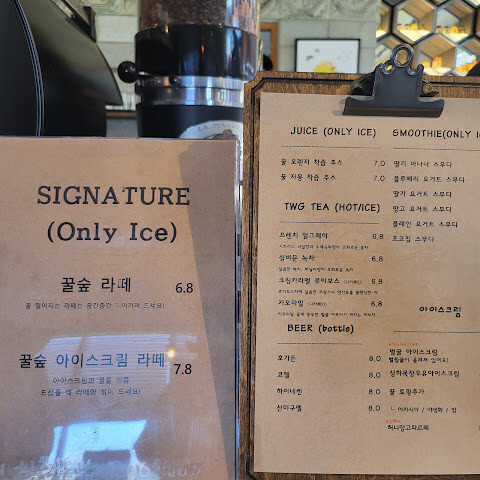 SIGNATURE
(Only Ice)
꿀숲 라떼 6.8
꿀숲 아이스크림 라떼 7.8
아이스크림과 꿀을 왕콤
드셨을 섞 라떼와 섞어 드세요!
JUICE (ONLY ICE)
꿀 오렌지 착즙 주스 7.0
꿀 자몽 착즙 주스 7.0
TWG TEA (HOT/ICE)
프렌치 얼그레이 6.8
실버문 녹차 6.8
크림카라멜 루이보스 (디카페인) 6.8
카모마일 (디카페인) 6.8
BEER (bottle)
호가든 8.0
코젤 8.0
하이네켄 8.0
산미구엘 8.0
SMOOTHIE(ONLY I
딸기 바나나 스무디
블루베리 요거트 스무디
딸기 요거트 스무디
망고 요거트 스무디
플레인 요거트 스무디
초코칩 스무디
아이스크림
벌꿀 아이스크림
상하목장우유아이스크림
꿀 토핑추가
ㄴ 아카시아 / 야생화 / 밤
허니망고파르페